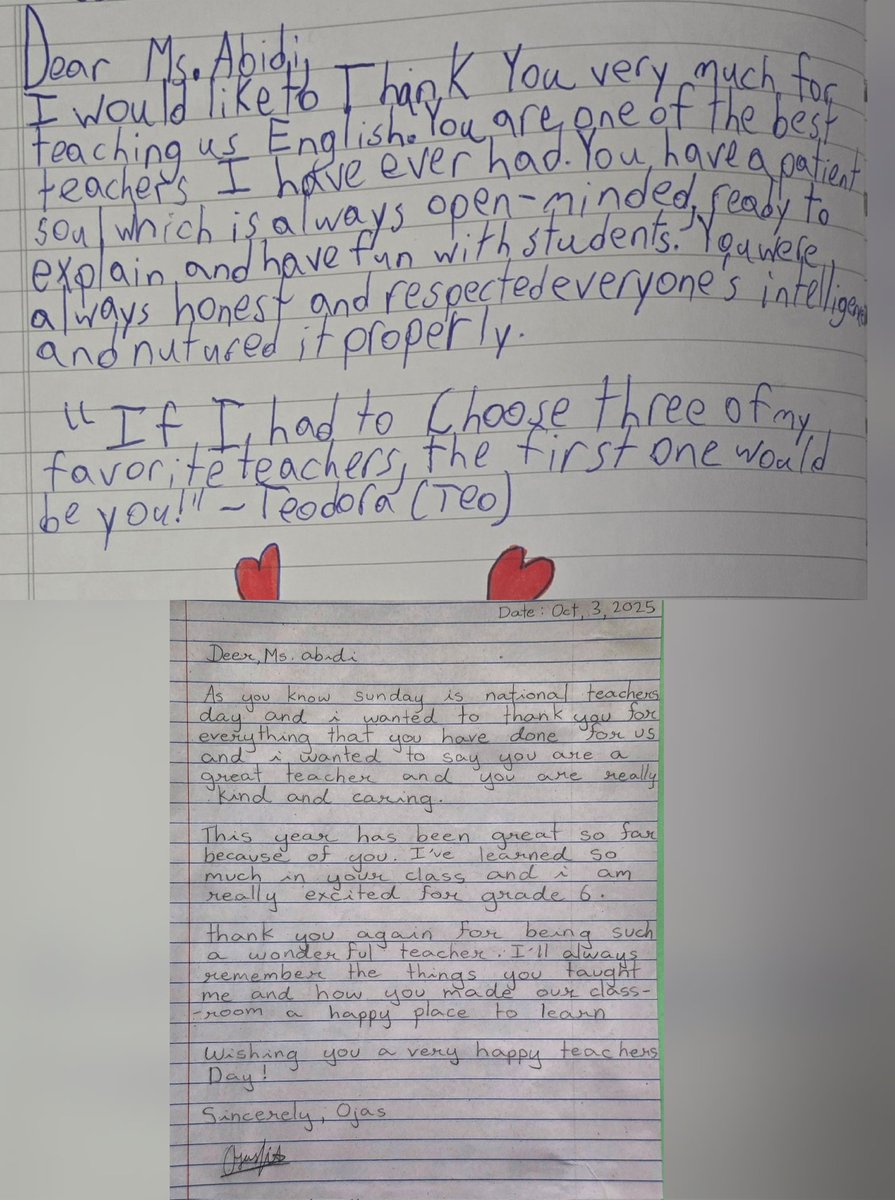 Dear Ms. Abidi,
I would like to Thank You very much for
teaching us English. You are one of the best
teachers I have ever had. You have a patient
soul which is always open-minded, ready to
explain and have fun with students. You were
always honest and respected everyone's intelligence
and nutured it properly.
"If I had to Choose three of my
favorite teachers, the first one would
be you!" - Teodora (Teo)
Date: Oct, 3, 2025
Deer, Ms. abidi
As you know sunday is national teachers
day and i wanted to thank you for
everything that you have done for us
and i wanted to say you are a
great teacher and you are really
kind and caring.
This year has been great so far
because of you. I've learned so
much in your class and i am
really excited for grade 6.
thank you again for being such
a wonderful teacher. I'll always
remember the things you taught
me and how you made our class-
-room a happy place to learn
Wishing you a very happy teachers
Day!
Sincerely, Ojas